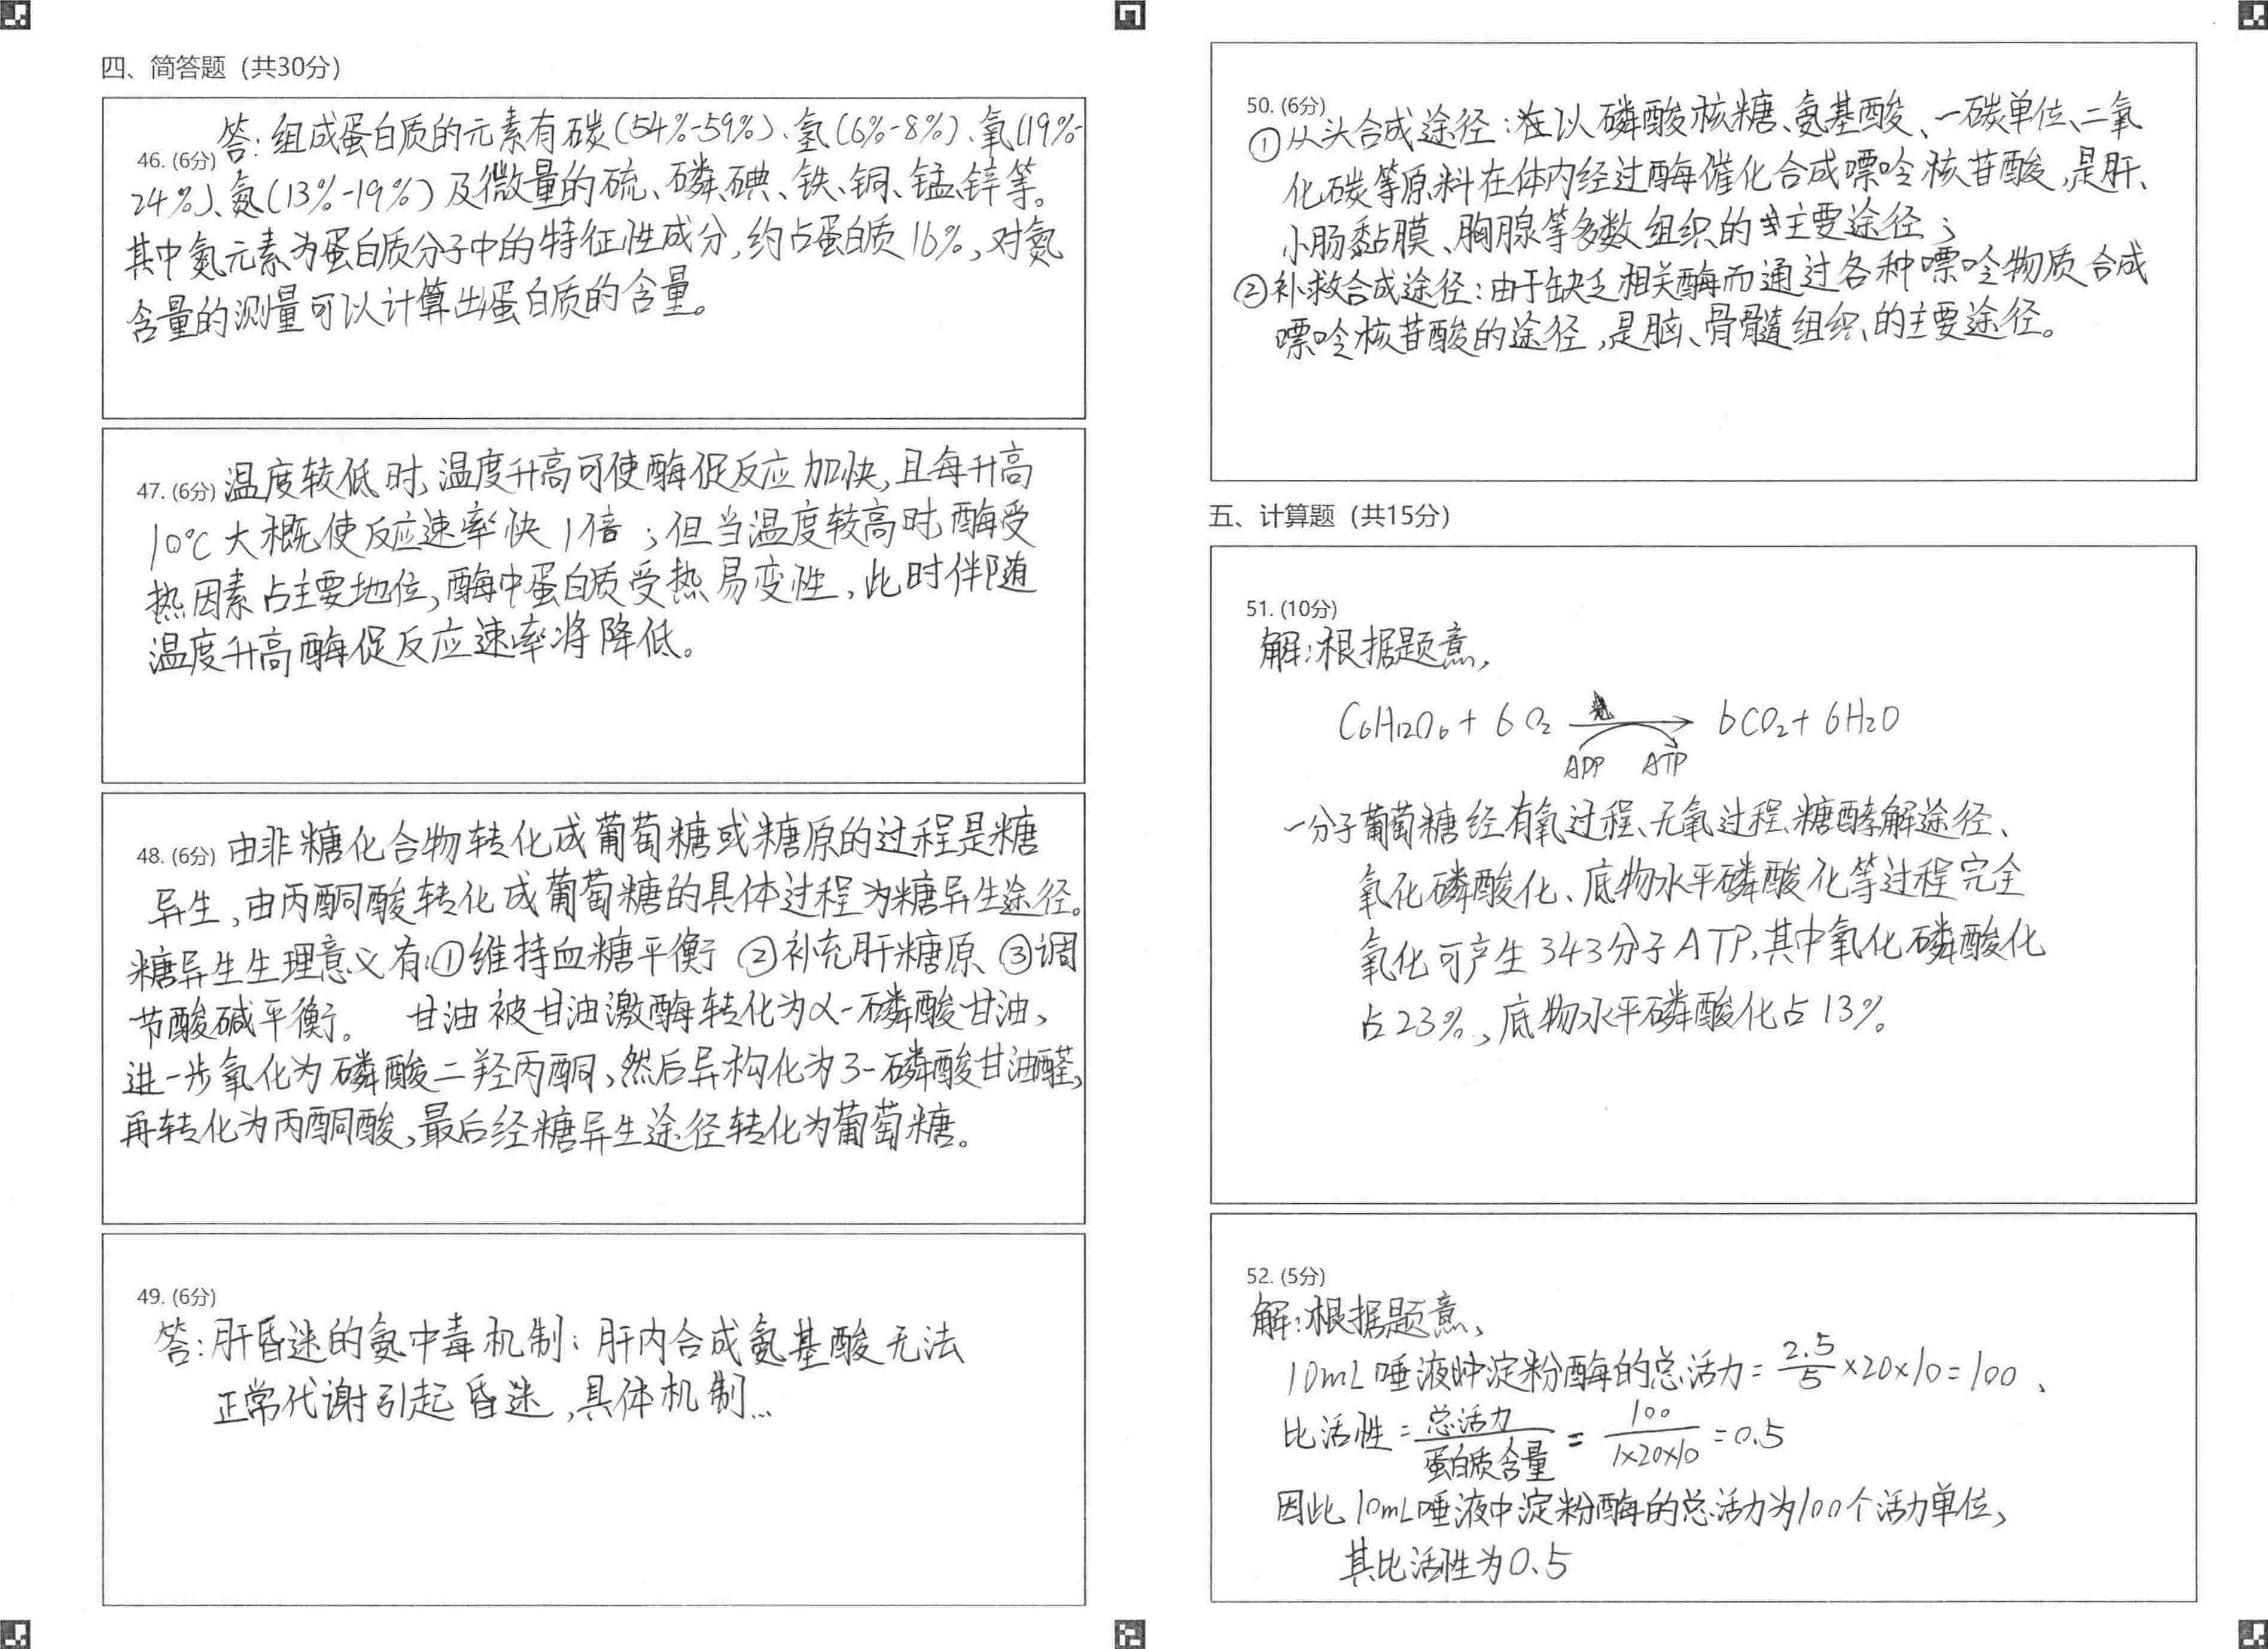 四、简答题（共30分）
答：组成蛋白质的元素有碳(54%-59%)、氢(6%-8%)、氧(19%-
46. (6分)
24%)、氮(13%-19%)及微量的硫、磷、碘、铁、铜、锰、锌等。
其中氮元素为蛋白质分子中的特征性成分，约占蛋白质16%，对氮
含量的测量可以计算出蛋白质的含量。
47. (6分) 温度较低时，温度升高可使酶促反应加快，且每升高
10℃大概使反应速率快1倍；但当温度较高时，酶受
热因素占主要地位，酶中蛋白质受热易变性，此时伴随
温度升高酶促反应速率将降低。
48. (6分) 由非糖化合物转化成葡萄糖或糖原的过程是糖
异生，由丙酮酸转化成葡萄糖的具体过程为糖异生途径。
糖异生生理意义有：①维持血糖平衡 ②补充肝糖原 ③调
节酸碱平衡。 甘油被甘油激酶转化为α-磷酸甘油，
进一步氧化为磷酸二羟丙酮，然后异构化为3-磷酸甘油醛，
再转化为丙酮酸，最后经糖异生途径转化为葡萄糖。
49. (6分)
答：肝昏迷的氨中毒机制：肝内合成氨基酸无法
正常代谢引起昏迷，具体机制…
50. (6分)
①从头合成途径：在以磷酸核糖、氨基酸、一碳单位、二氧
化碳等原料在体内经过酶催化合成嘌呤核苷酸，是肝、
小肠黏膜、胸腺等多数组织的主要途径；
②补救合成途径：由于缺乏相关酶而通过各种嘌呤物质合成
嘌呤核苷酸的途径，是脑、骨髓组织的主要途径。
五、计算题（共15分）
51. (10分)
解：根据题意，
C6H12O6 + 6O2 → 6CO2 + 6H2O
ADP ATP
一分子葡萄糖经有氧过程、无氧过程、糖酵解途径、
氧化磷酸化、底物水平磷酸化等过程完全
氧化可产生343分子ATP，其中氧化磷酸化
占23%，底物水平磷酸化占13%。
52. (5分)
解：根据题意，
10mL唾液中淀粉酶的总活力= 2.5/5 ×20×10=100，
比活性= 总活力/蛋白质含量 = 100/1×20×10 =0.5
因此10mL唾液中淀粉酶的总活力为100个活力单位，
其比活性为0.5